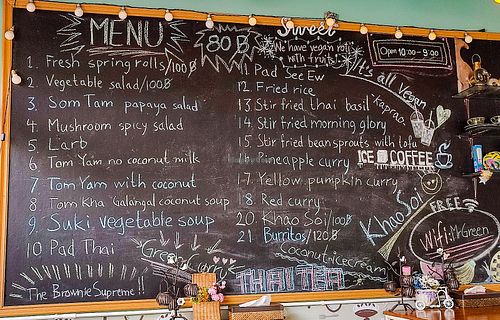 MENU
80 ฿
Sweet
We have vegan roll
with fruits!
Open 10:00-9:00
It's all vegan
1. Fresh spring rolls/100฿
2. Vegetable salad/100฿
3. Som Tam papaya salad
4. Mushroom spicy salad
5. Larb
6. Tom Yam no coconut milk
7 Tom Yam with coconut
8 Tom Kha Galangal coconut soup
9. Suki vegetable soup
10 Pad Thai
11. Pad See Ew
12. Fried rice
13. Stir fried thai basil Kaprao
14. Stir fried morning glory
15. Stir fried bean sprouts with tofu
16. Pineapple curry
17. Yellow pumpkin curry
18. Red curry
20. Khao Soi/100฿
21 Burritos/120฿
ICE COFFEE
Khao Soi
FREE
Wifi:MrGreen
Green Curry
Coconut icecream
THAI TEA
The Brownie Supreme!!